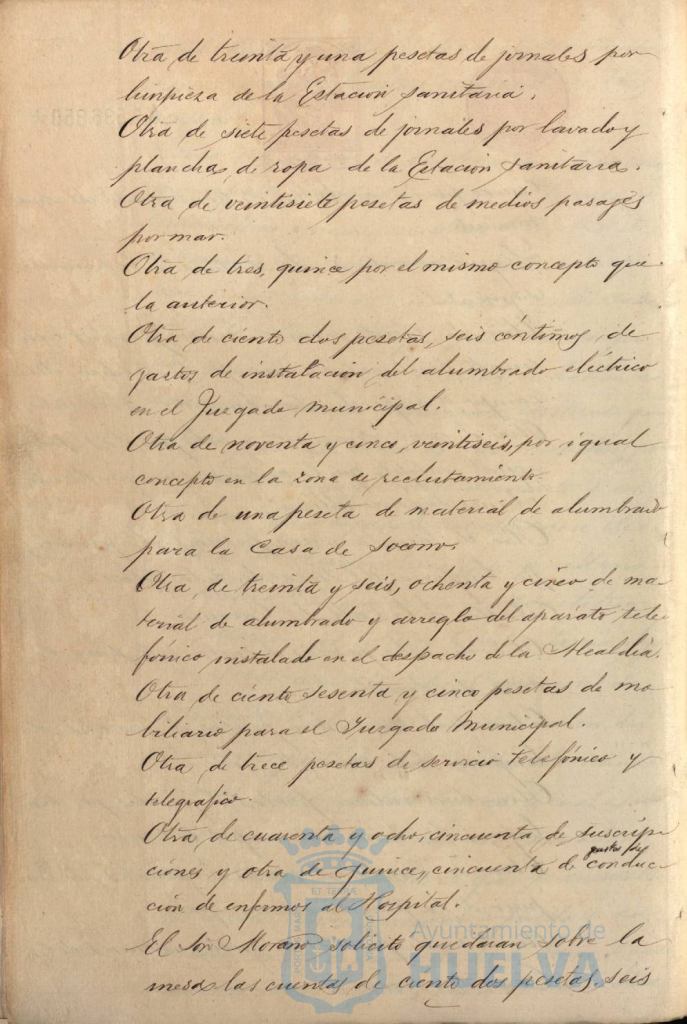 Otra de treinta y una pesetas de jornales por
limpieza de la Estacion sanitaria.
Otra de siete pesetas de jornales por lavado y
plancha de ropa de la Estacion sanitaria.
Otra de veintisiete pesetas de medios pasages
por mar.
Otra de tres, quince por el mismo concepto que
la anterior.
Otra de ciento dos pesetas, seis céntimos de
gastos de instalacion del alumbrado eléctrico
en el Juzgado municipal.
Otra de noventa y cinco, veintiseis, por igual
concepto en la zona de reclutamiento.
Otra de una peseta de material de alumbrado
para la Casa de socorro.
Otra de treinta y seis, ochenta y cinco de ma-
terial de alumbrado y arreglo del aparato tele
fónico instalado en el despacho de la Alcaldía.
Otra de ciento sesenta y cinco pesetas de mo
biliario para el Juzgado Municipal.
Otra de trece pesetas de servicio telefónico y
telegrafico.
Otra de cuarenta y ocho, cincuenta de suscrip-
ciones y otra de quince, cincuenta de gastos de conduc-
cion de enfermos al Hospital.
El Sor Morano solicitó quedaran sobre la
mesa las cuentas de ciento dos pesetas, seis
Ayuntamiento de
HUELVA